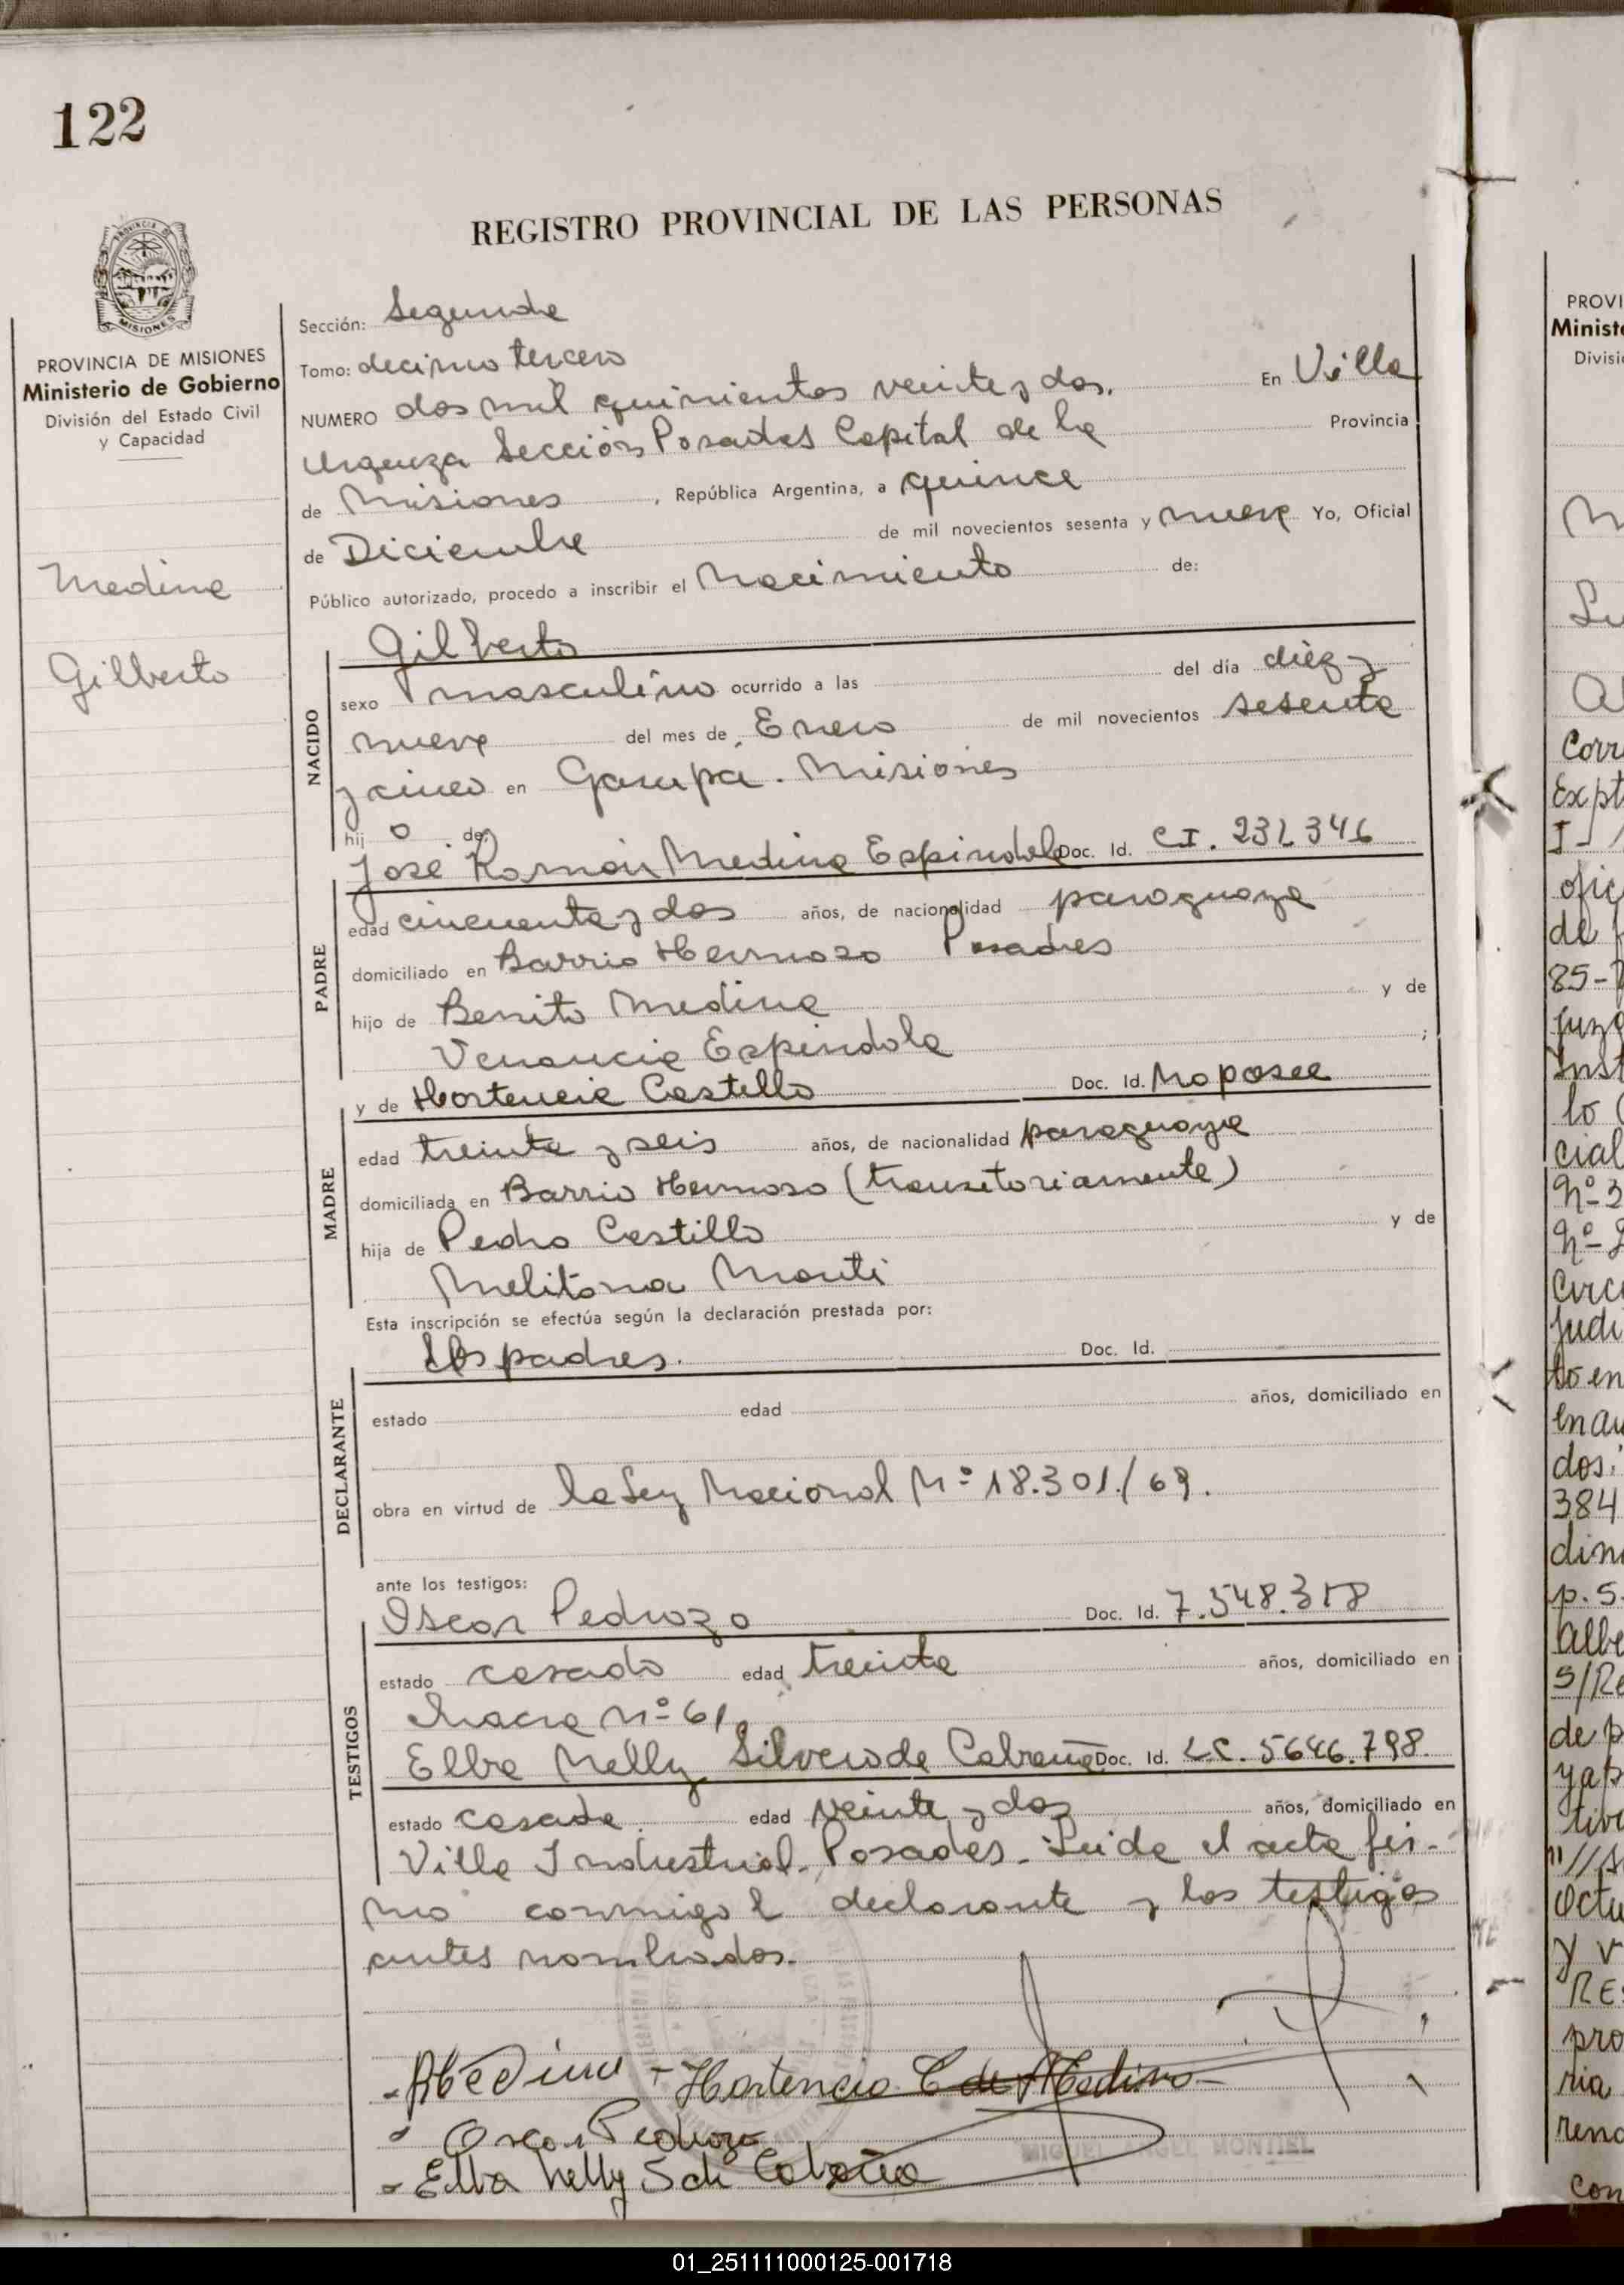 122
REGISTRO PROVINCIAL DE LAS PERSONAS
PROVINCIA DE MISIONES
Ministerio de Gobierno
División del Estado Civil
y Capacidad
Medina
Gilberto
Sección: Segunda
Tomo: decimo tercero
NUMERO dos mil quinientos veinte y dos. En Villa
Urquiza Sección Posadas Capital de la Provincia
de Misiones, República Argentina, a quince
de Diciembre de mil novecientos sesenta y nueve Yo, Oficial
Público autorizado, procedo a inscribir el Nacimiento de:
NACIDO
Gilberto
sexo masculino ocurrido a las del día diez y
nueve del mes de Enero de mil novecientos sesenta
y cinco en Garupa. Misiones
hij o de:
José Ramón Medina Espindola Doc. Id. C.I. 232346
PADRE
edad cincuenta y dos años, de nacionalidad paraguaya
domiciliado en Barrio Hermoso Posadas
hijo de Benito Medina y de
Venancia Espindola ;
y de Hortencia Castillo Doc. Id. No posee
MADRE
edad treinta y seis años, de nacionalidad paraguaya
domiciliada en Barrio Hermoso (transitoriamente)
hija de Pedro Castillo y de
Melitona Monti
Esta inscripción se efectúa según la declaración prestada por:
los padres. Doc. Id.
DECLARANTE
estado edad años, domiciliado en
obra en virtud de la Ley Nacional Nº 18.301./69.
ante los testigos:
Oscar Pedrozo Doc. Id. 7.548.318
TESTIGOS
estado casado edad treinta años, domiciliado en
Chacra Nº 61
Elba Nelly Silvero de Cabraña Doc. Id. L.C. 5646.798.
estado casada. edad veinte y dos años, domiciliado en
Villa Industrial. Posadas. Leida el acta fir-
mo conmigo l declarante y los testigos
antes nombrados.
RMedina - Hortencia C de Medina
Oscar Pedrozo
Elba Nelly S de Cabraña
MIGUEL ANGEL MONTIEL
01_251111000125-001718